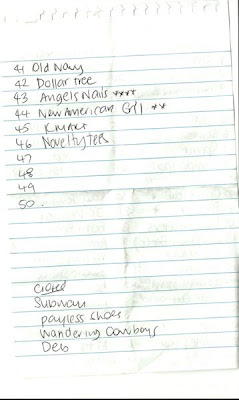 41 Old Navy
42 Dollar tree
43 Angels Nails ****
44 New American Girl **
45 Kmart
46 Novelty tees
47
48
49
50.
closed
Subway
payless shoes
Wandering Cowboys
Deb